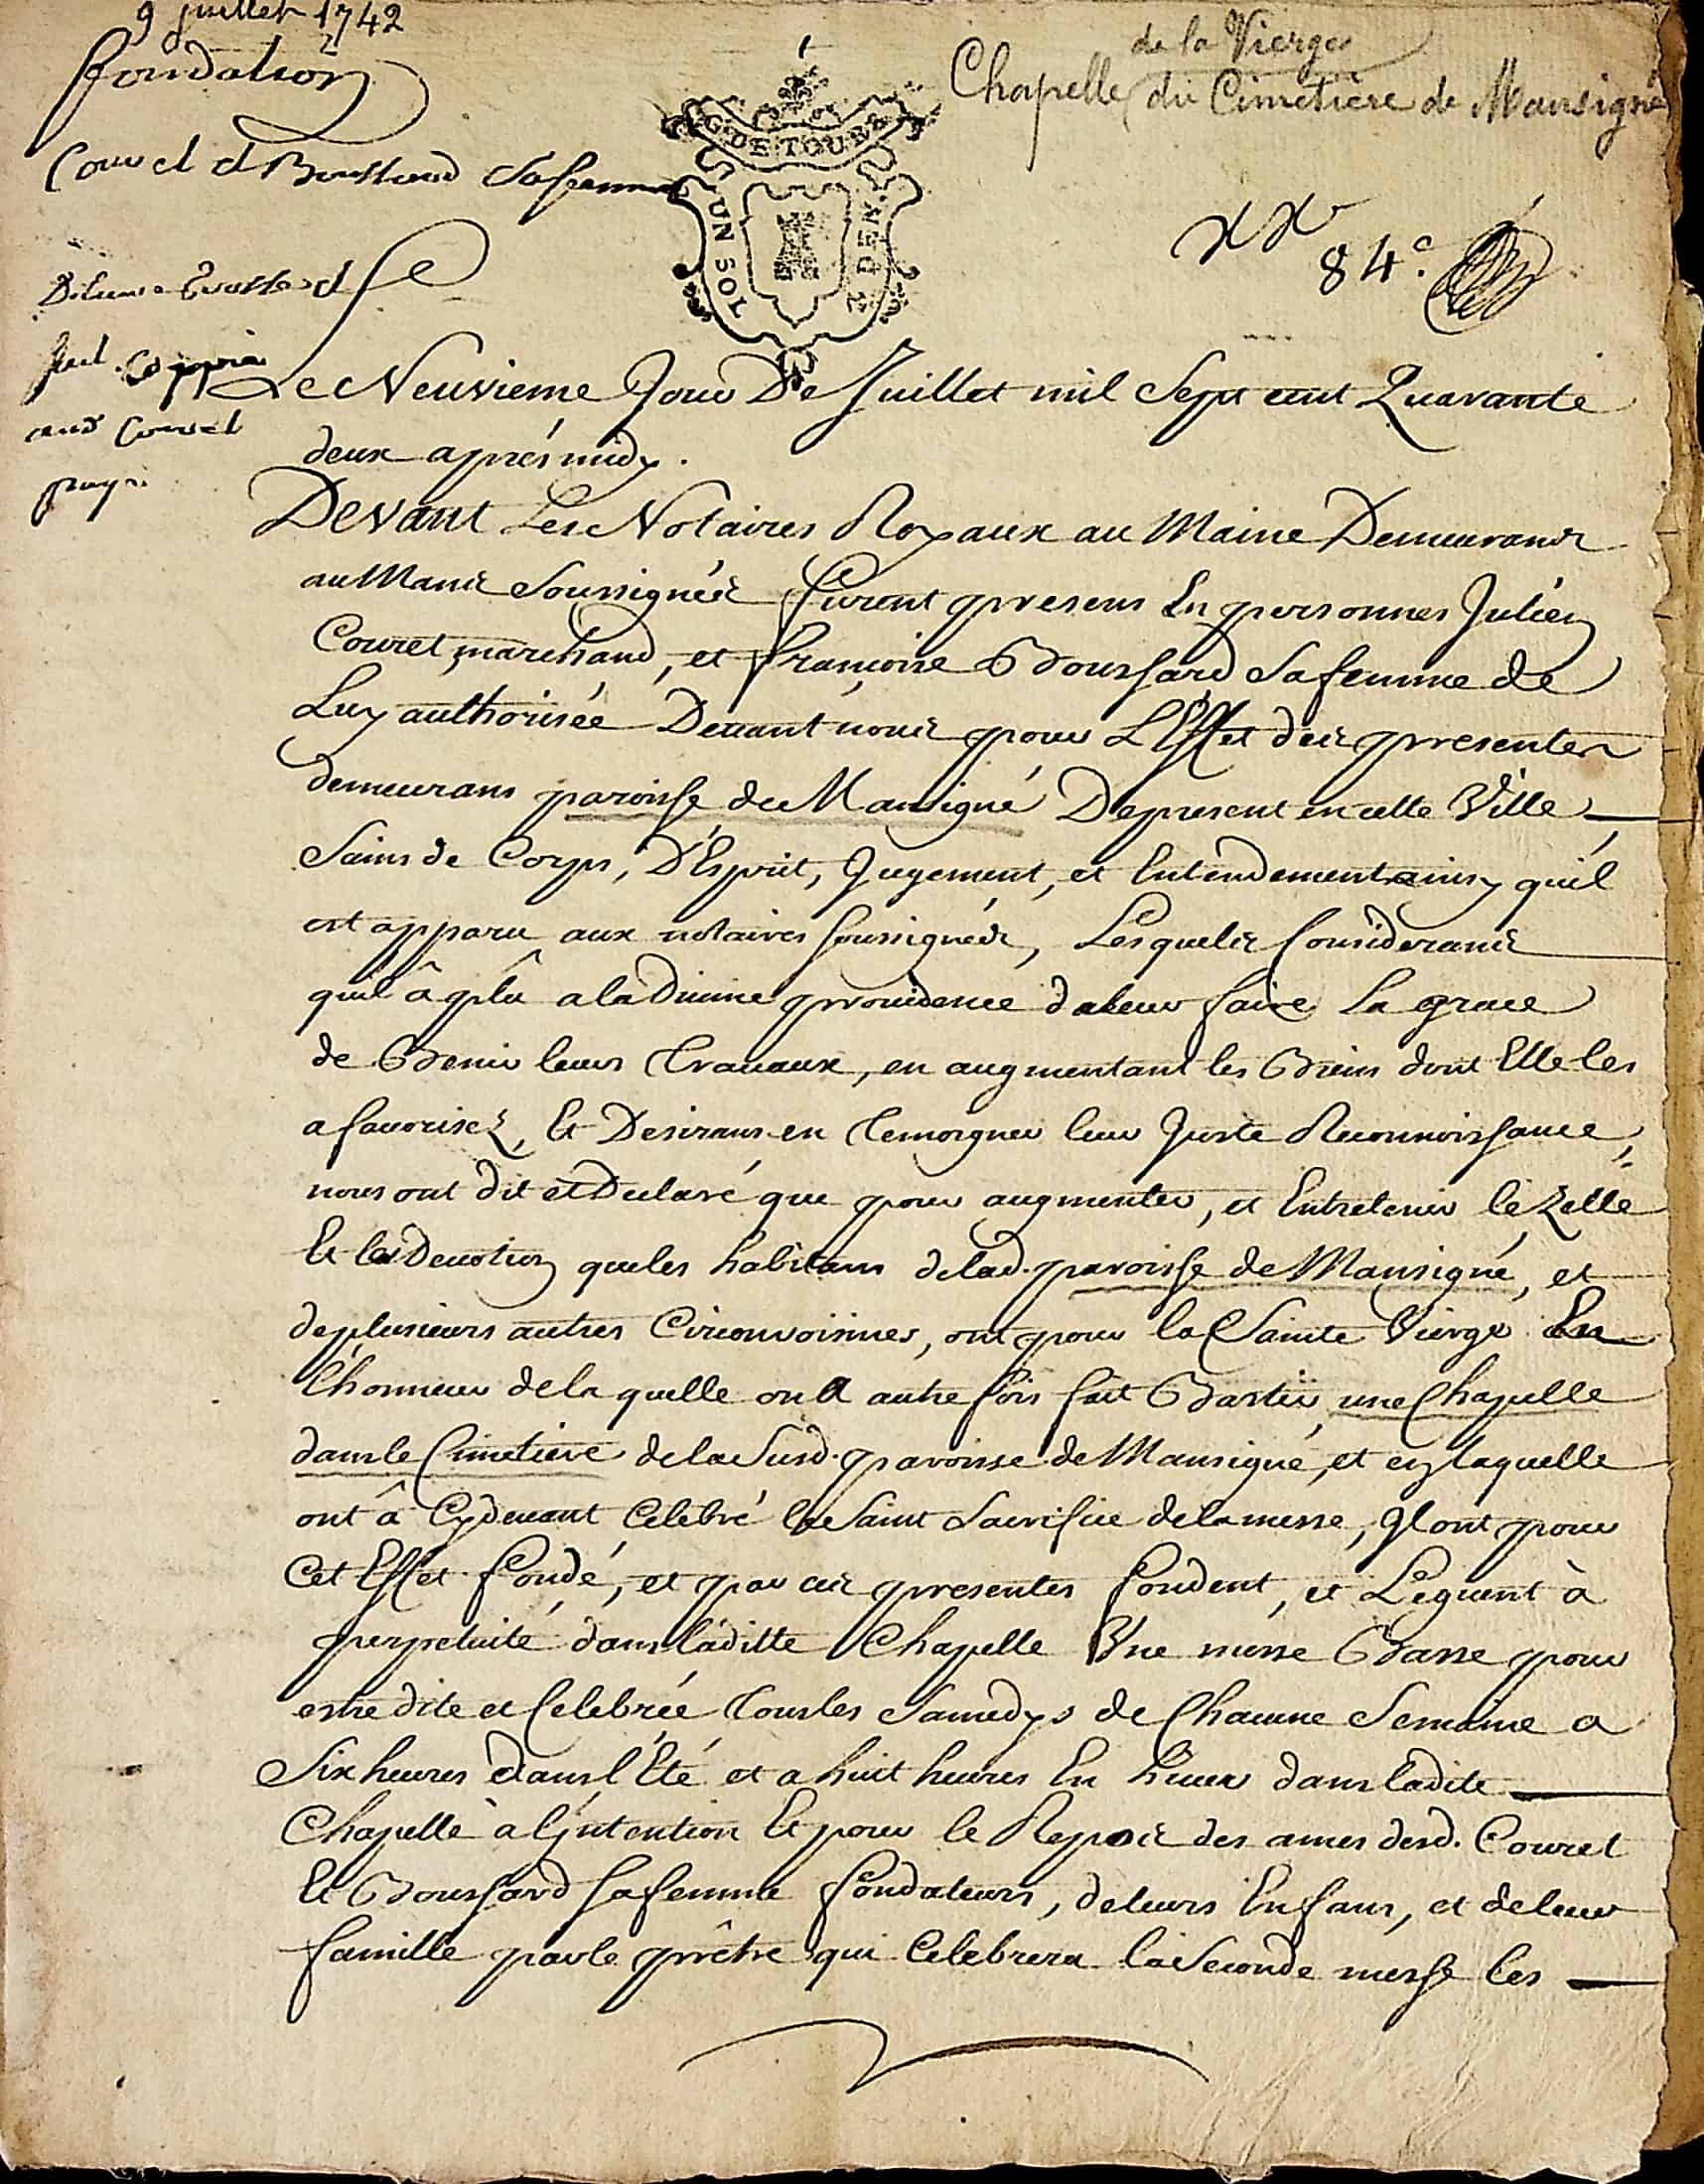 9 juillet 1742
fondation
de la Vierge
Chapelle du Cimetiere de Mansigné
Couret et Boussard sa femme
G. DE TOURS
UN SOL
2 DEN.
84e.
Le Neuvieme Jour De Juillet mil Sept cent Quarante
deux aprés midy.
Devant Les Notaires Royaux au Maine Demeurans
au Mans Soussignés furent presens En personnes Julien
Couret, marchand, et françoise Boussard Sa femme de
Luy authorisée Devant nous pour L'Effet des presentes
demeurans paroisse de Mansigné De present en cette Ville
Sains de Corps, D'Esprit, Jugement, et Entendement ainsy qu'il
est apparu aux notaires soussignés, Lesquels Considerans
quil â plû a la Divine providence de leur faire la grace
de Benir leurs Travaux, en augmentant les Biens dont Elle les
a favorisez, Et Desirans en Temoigner leur Juste Reconnoissance,
nous ont dit et Declaré que pour augmenter, et Entretenir le Zelle
Et la Devotion que les habitans de lad. paroisse de Mansigné, et
de plusieurs autres Circonvoisines, ont pour la Sainte Vierge En
l'honneur de la quelle on a autre fois fait Bastir une Chapelle
dans le Cimetiere de la Susd. paroisse de Mansigné, et en laquelle
ont â Cydevant Celebré le Saint Sacrifice de la messe, Jl ont pour
Cet Effet fondé, et par ces presentes fondent, et Leguent à
perpetuité dans laditte Chapelle Une messe Basse pour
estre dite et Celebrée Tous les Samedys de Chacune Semaine a
Six heures dans l'Eté et a huit heures En hiver dans ladite
Chapelle à l'Jntention Et pour le Repos des ames desd. Couret
Et Boussard sa femme fondateurs, de leurs Enfans, et de leur
famille par le prêtre qui Celebrera la Seconde messe les